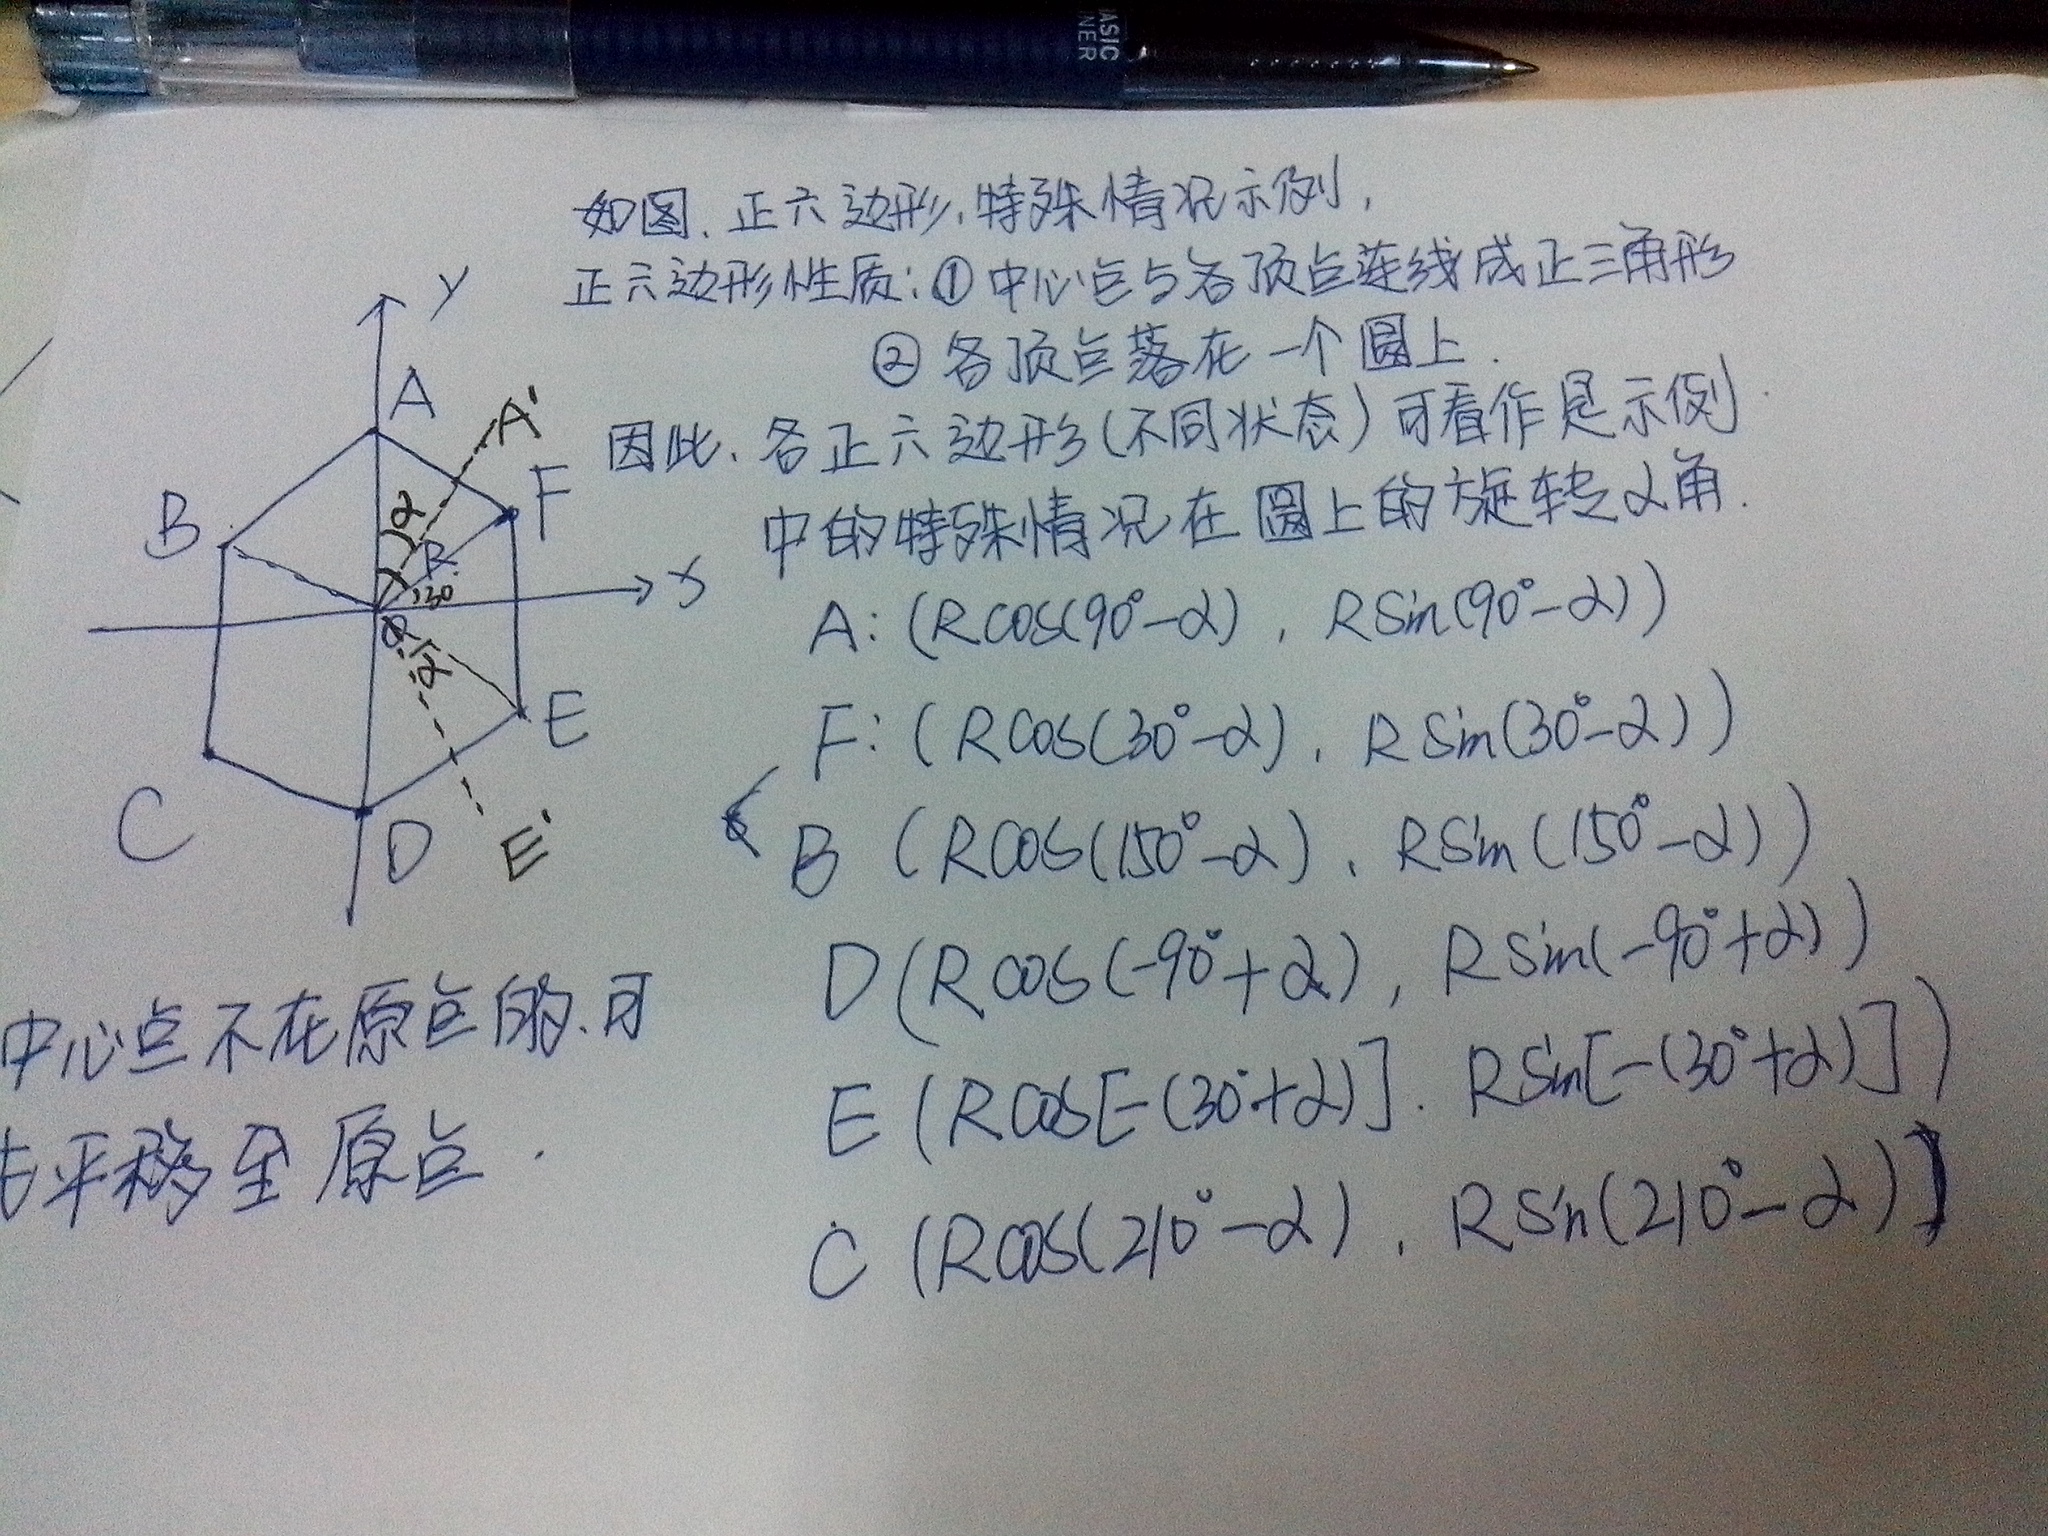 ASIC
NER
如图.正六边形.特殊情况示例,
正六边形性质:①中心点与各顶点连线成正三角形
②各顶点落在一个圆上.
因此.各正六边形(不同状态)可看作是示例
中的特殊情况在圆上的旋转α角.
A:(Rcos(90°-α),RSin(90°-α))
F:(Rcos(30°-α),RSin(30°-α))
B(Rcos(150°-α),RSin(150°-α))
D(Rcos(-90°+α),RSin(-90°+α))
E(Rcos[-(30°+α)].RSin[-(30°+α)])
C(Rcos(210°-α),RSin(210°-α))
Y
A
A'
B
F
α
R
30
x
α
E
C
D
E'
中心点不在原点的.可
平移至原点.